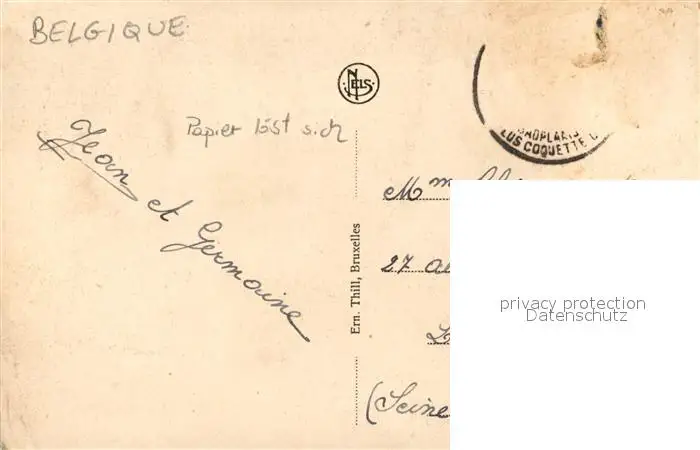 BELGIQUE
NELS
Papier löst sich
Jean et Germaine
Ern. Thill, Bruxelles
LUS COQUETTE
Mme
27
(Seine
privacy protection
Datenschutz